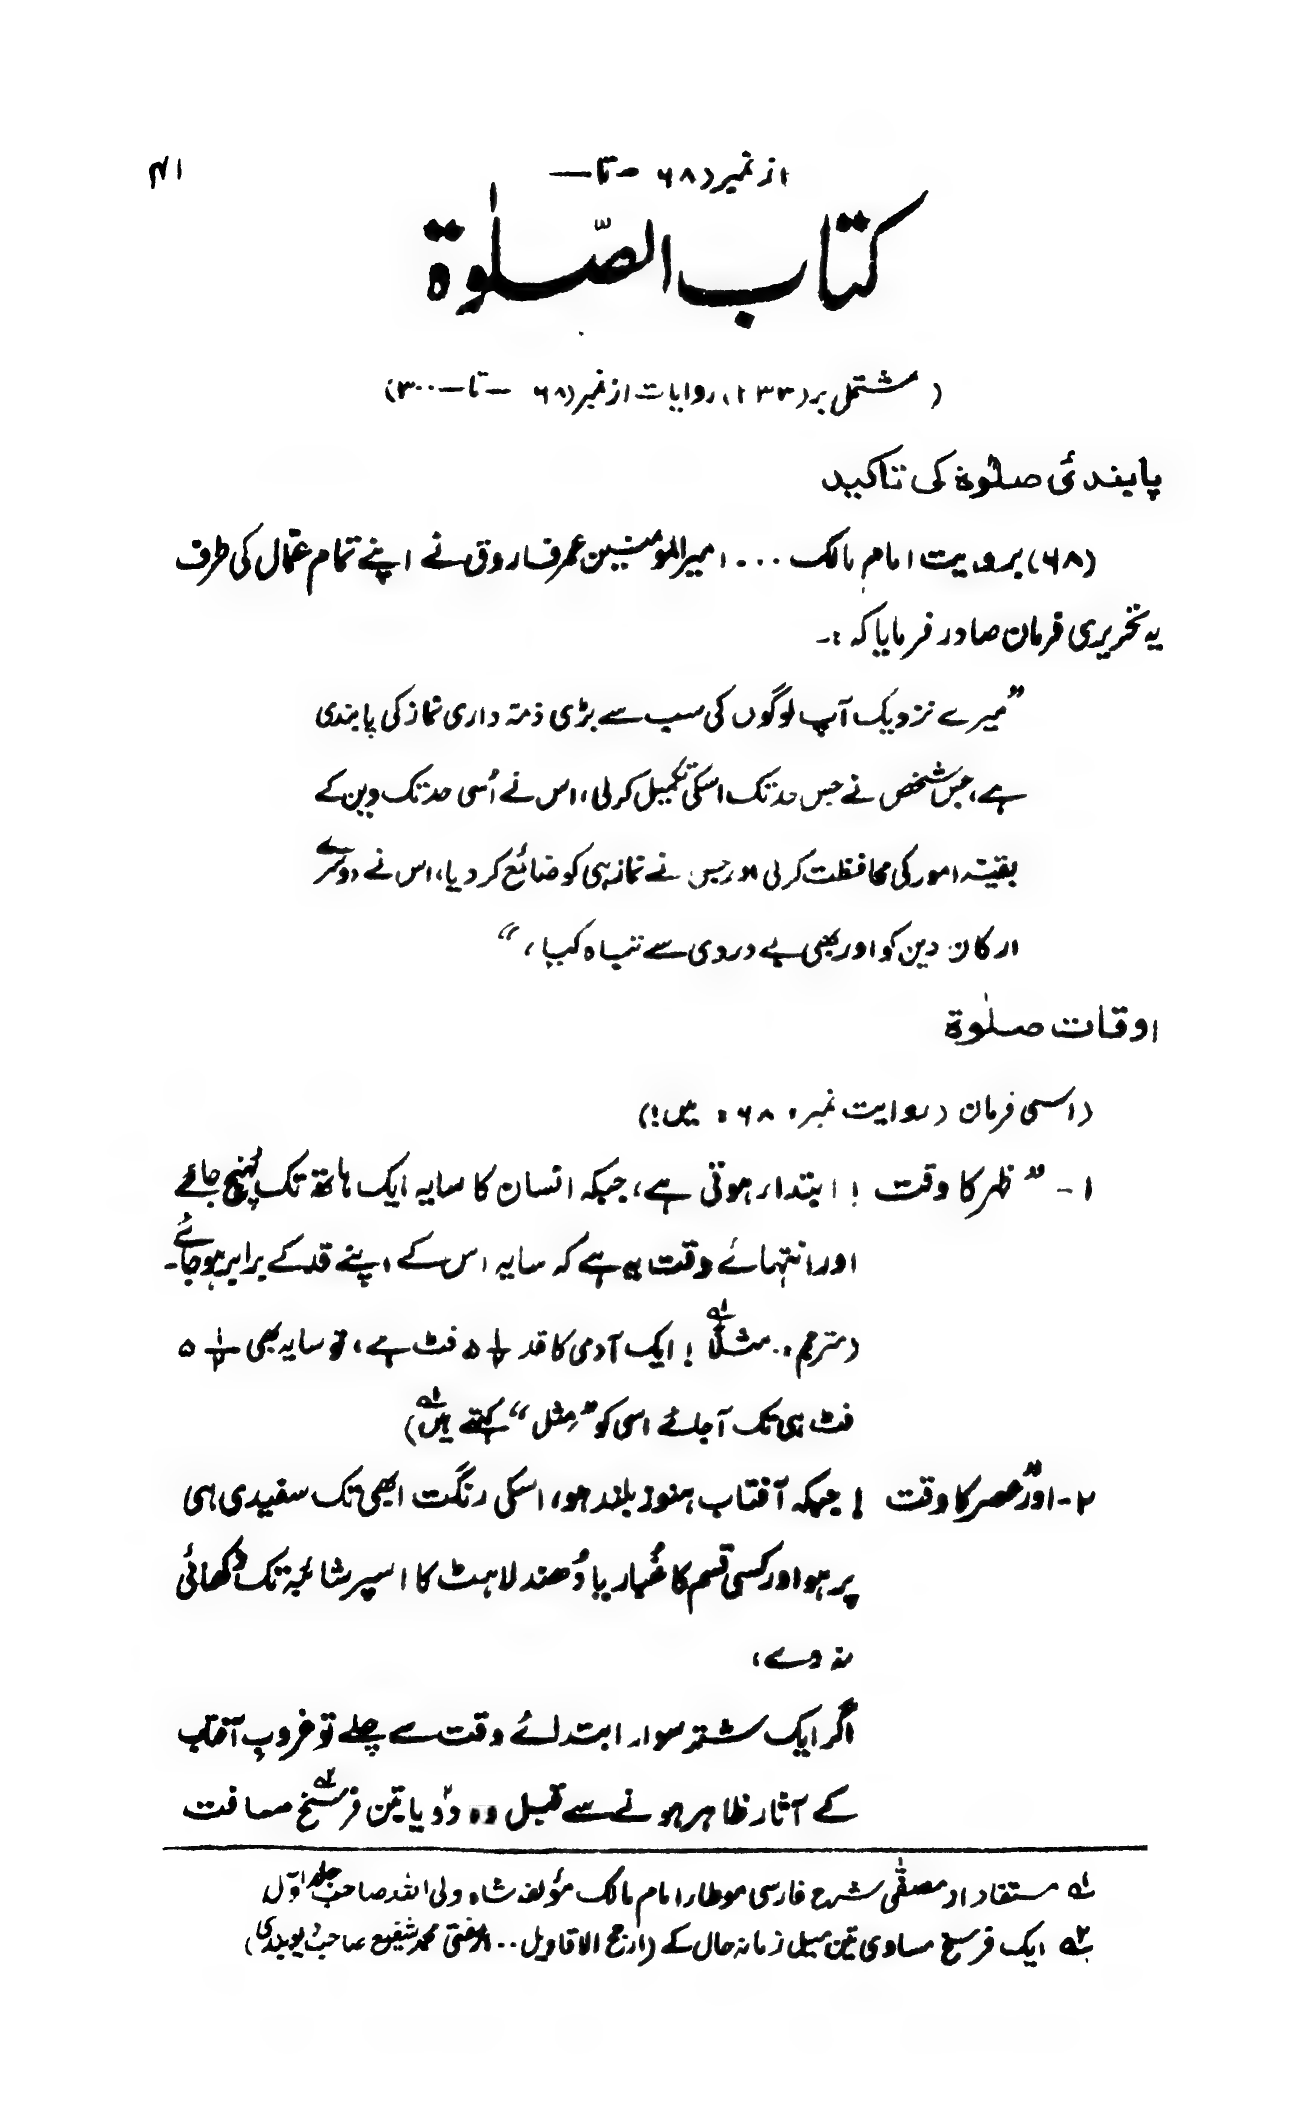 از نمبر (۶۸ - تا —
۴۱
کتاب الصّلوٰۃ
(مشتمل بر (۲۳۳) روایات از نمبر (۶۸ — تا — ۳۰۰)
پابندئ صلوٰۃ کی تاکید
(۶۸) بروایت امام مالک ... امیرالمؤمنین عمر فاروق نے اپنے تمام عمّال کی طرف
یہ تحریری فرمان صادر فرمایا کہ :-
”میرے نزدیک آپ لوگوں کی سب سے بڑی ذمّہ داری نماز کی پابندی
ہے، جس شخص نے جس حد تک اسکی تکمیل کر لی، اس نے اُسی حد تک دین کے
بقیّہ امور کی محافظت کر لی اور جس نے نماز ہی کو ضائع کر دیا، اس نے دوسرے
ارکان دین کو اور بھی بے دردی سے تباہ کیا،“
اوقات صلوٰۃ
(اسی فرمان (روایت نمبر، ۶۸، میں!)
۱ - ”ظہر کا وقت ! ابتدا، ہوتی ہے، جبکہ انسان کا سایہ ایک ہاتھ تک پہنچ جائے
اور انتہائے وقت یہ ہے کہ سایہ اس کے اپنے قد کے برابر ہو جائے۔
(مترجم،. مثلاً ! ایک آدمی کا قد ۵ ۱/۲ فٹ ہے، تو سایہ بھی ۵ ۱/۲
فٹ ہی تک آ جائے اسی کو ”مِثل“ کہتے ہیں لہ)
۲ - اور ”عصر کا وقت ! جبکہ آفتاب ہنوز بلند ہو، اسکی رنگت ابھی تک سفیدی ہی
پر ہو اور کسی قسم کا غُبار یا دُھندلاہٹ کا اسپر شائبہ تک دکھائی
نہ دے،
اگر ایک شتر سوار ابتدائے وقت سے چلے تو غروبِ آفتاب
کے آثار ظاہر ہونے سے قبل وہ دو یا تین فرسخ ۲ مسافت
۱ مستفاد از مصفّٰی شرح فارسی موطا، امام مالک مؤلفہ شاہ ولی اللہ صاحب جلد اوّل
۲ ایک فرسخ مساوی تین میل زمانہ حال کے (ارجح الاقاویل .. از مفتی محمد شفیع صاحب دیوبندی)